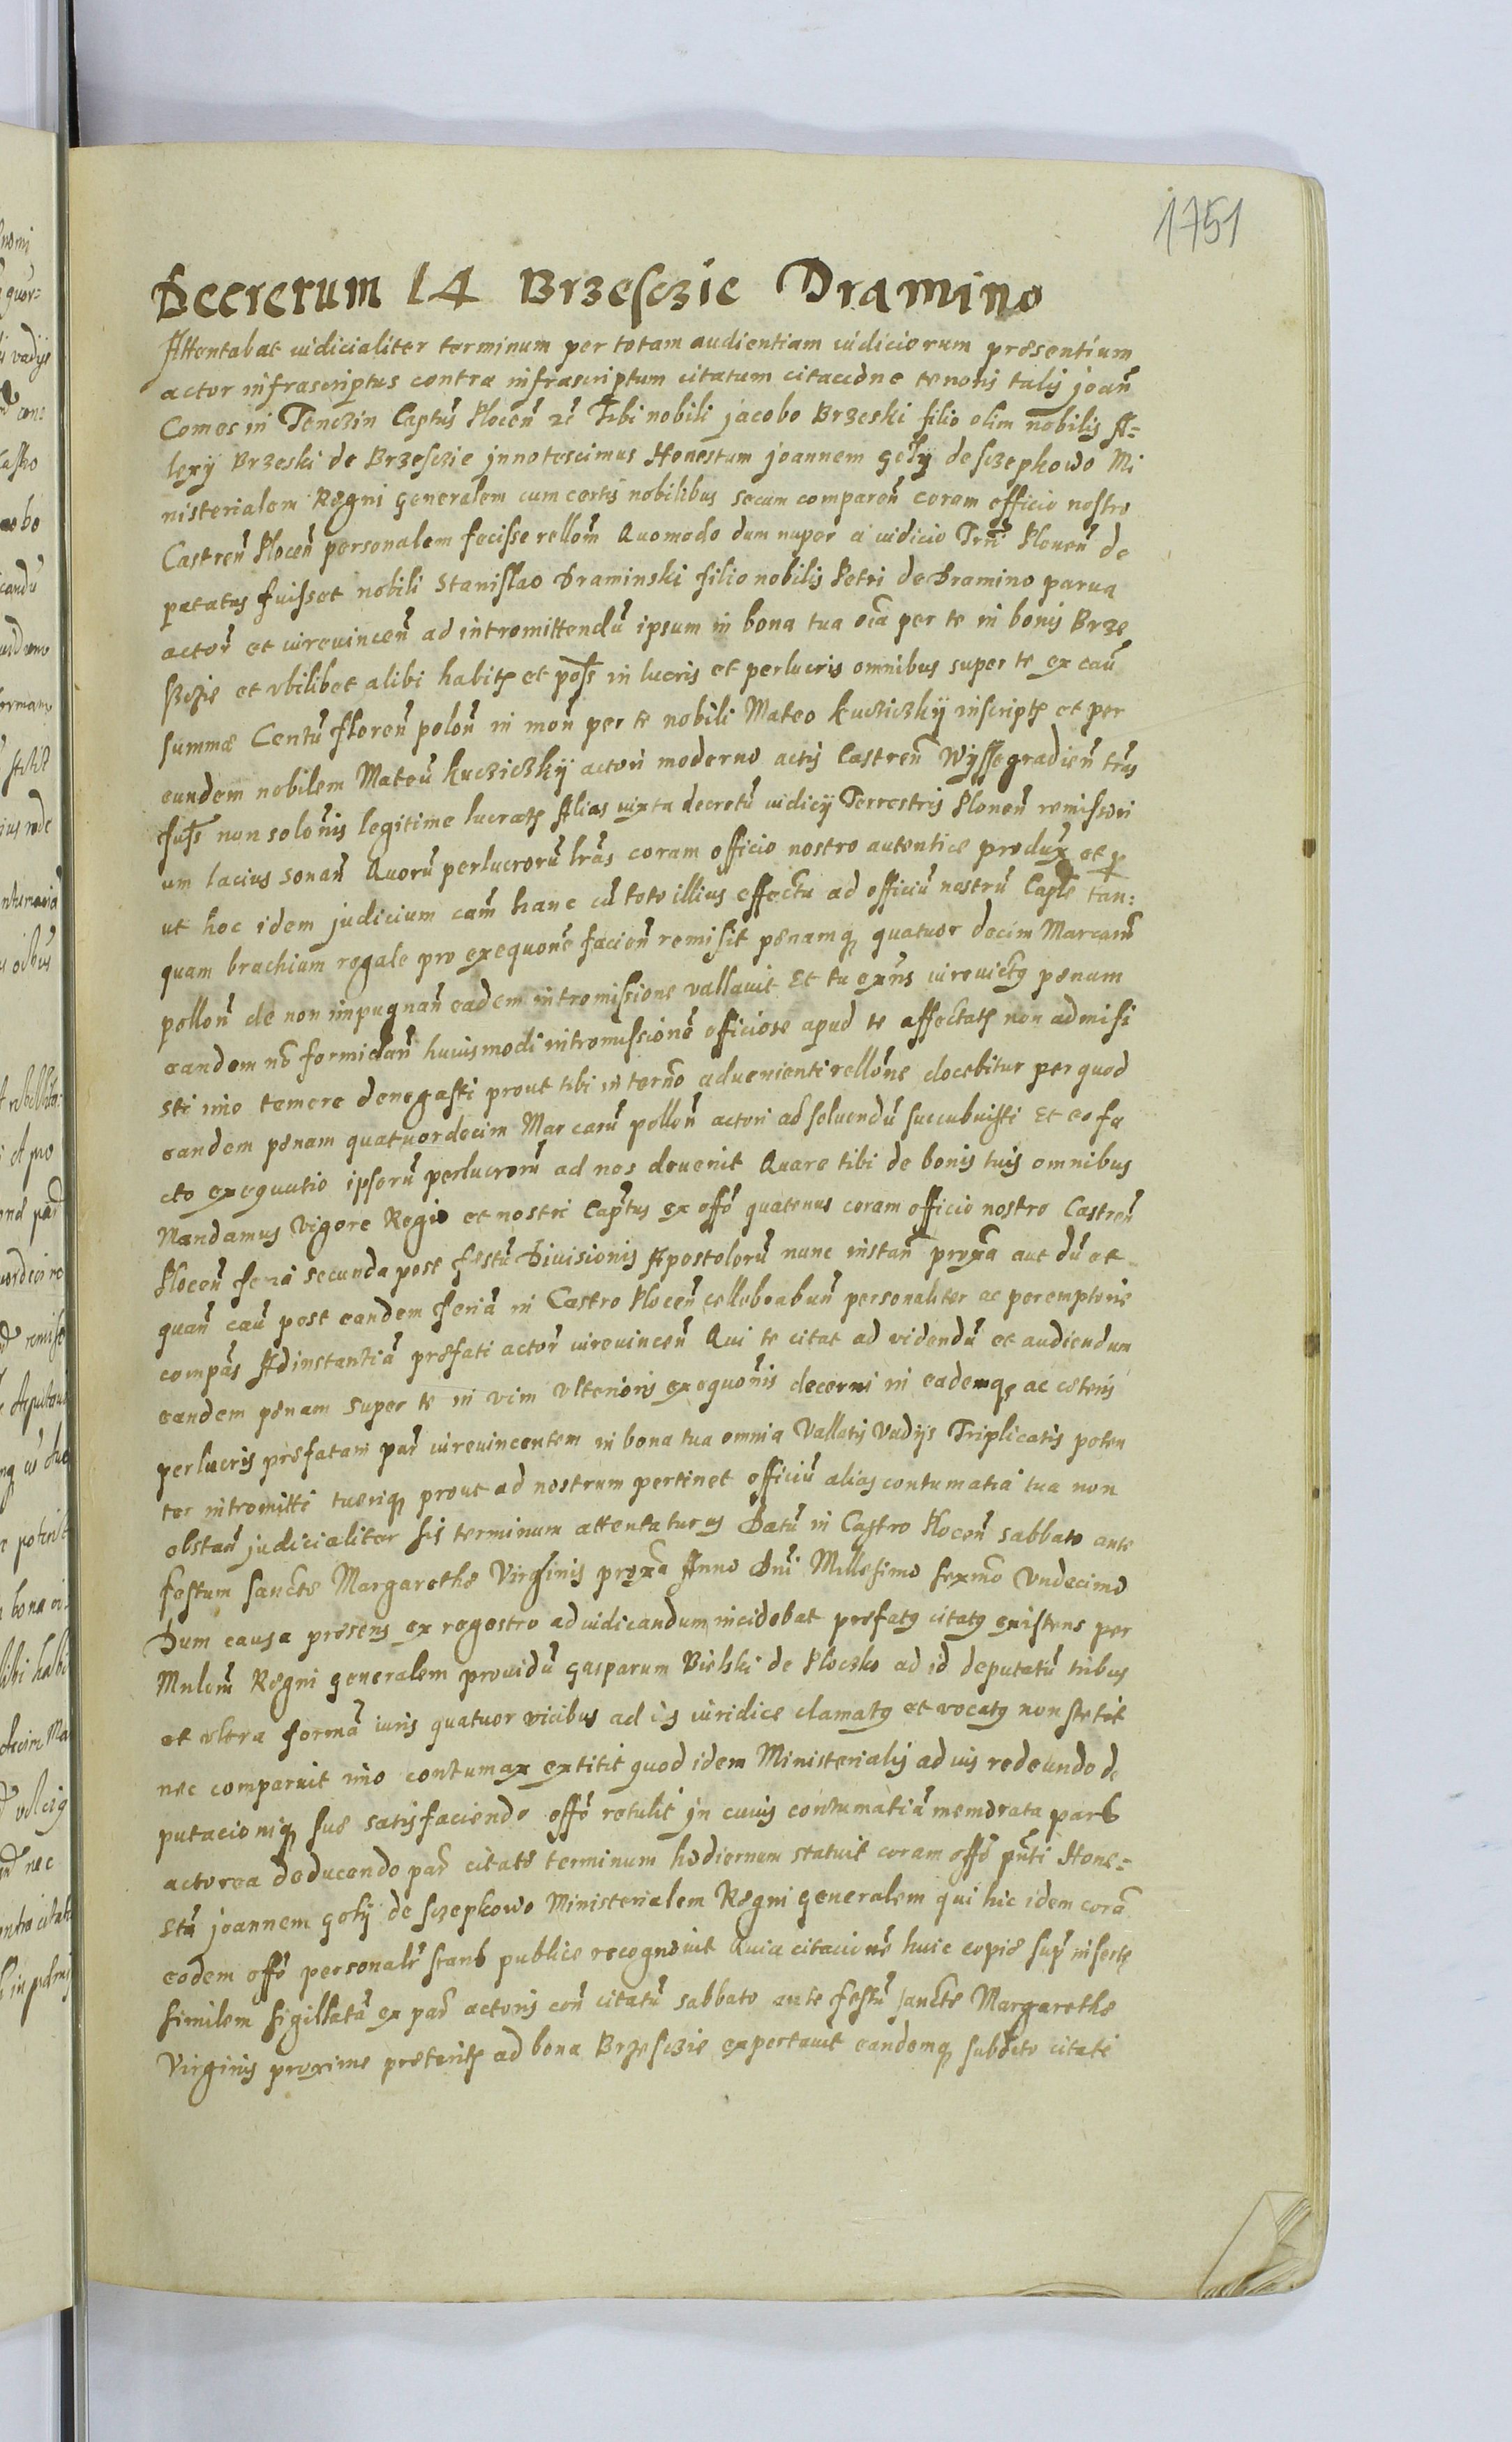 1751
Decretum 14 Brzesczie Dramino
Attentabat iudicialiter terminum per totam audientiam iudiciorum præsentium
actor infrascriptus contra infrascriptum citatum citacione tenoris talis Joan̄
Comes in Tenczin Captūs Plocen̄ zc̄ Tibi nobili jacobo Brzeski filio olim nobilis A=
lexÿ Brzeski de Brzesczie jnnotescimus Honestum joannem golÿ de sczepkowo Mi
nisterialem Regni generalem cum certis nobilibus secum comparen̄ coram officio nostro
Castren̄ Plocen̄ personalem fecisse rellōm Quomodo dum nuper a iudicio Trrī Plonen̄ de
putatus fuisset nobili Stanislao Draminski filio nobilis Petri de Dramino parua
actor̄ et iurevincen̄ ad intromittendū ipsum in bona tua oīa per te in bonis Brze
sczie et vbilibet alibi habitƺ et poss̄ in lucris et perlucris omnibus super te ex cau̅
summæ Centū floren̄ polon̄ in mon̄ per te nobili Mateo kucziczkÿ inscriptƺ et per
eundem nobilem Mateū kucziczkÿ actori moderno actis Castren̄ Wyssegradien̄ trās
fus̄s non solōnis legitime lucratƺ Alias iuxta decretū iudicÿ Terrestris Plonen̄ remissori
um lacius sonan̄ Quorū perlucrorū lrās coram officio nostro autentice produx̄ et p
ut hoc idem judicium cām hanc cū toto illius effectu ad officiū nostrū Caplē tan:
quam brachium regale pro exequōne facien̄ remisit pænamqƺ quatuor decim Marcarū
pollon̄ de non impugnan̄ eadem intromissione vallauit Et tu exn̄s iurevictƺ pænam
eandem nō formidan̄ huiusmodi intromissionē officiose apud te affectatƺ non admisi
sti imo temere denegasti prout tibi in termō aduenienti rellōne docebitur per quod
eandem pænam quatuordecim Marcarū pollon̄ actori ad soluendū succubuisti Et eo fa
cto exequutio ipsorū perlucrorū ad nos deuenit Quare tibi de bonis tuis omnibus
Mandamus Vigore Regio et nostri Captūs ex offō quatenus coram officio nostro Castren̄
Plocen̄ feria secunda post festū Diuisionis Apostolorū nunc instan̄ proxā aut dū et
quan̄ cau̅ post eandem feriā in Castro Plocen̄ cellebrabun̄ personaliter ac peremptorie
compās Ad instantiā præfati actor̄ iurevincen̄ Qui te citat ad videndū et audiendum
eandem pænam super te in vim vlterioris exequōnis decerni in eademqƺ ac cæteris
perlucris præfatam par̄ iurevincentem in bona tua omnia Vallatis Vadÿs Triplicatis poten
ter intromitti tueriqƺ prout ad nostrum pertinet officiū alias contumatia tua non
obstan̄ judicialiter sis terminum attentaturus Datū in Castro Plocen̄ sabbato ante
festum sanctæ Margarethæ Virginis proxā Anno Dnī Millesimo sexmō Vndecimo
Dum causa præsens ex regestro ad iudicandum incidebat præfatƺ citatƺ existens per
Mnlem̄ Regni generalem prouidū gasparum Bielski de Ploczko ad id deputatū tribus
et vltra formā iuris quatuor vicibus ad iƺ iuridice clamatƺ et vocatƺ non stetit
nec comparuit imo contumax extitit quod idem Ministerialis ad iuis redeundo de
putacioniqƺ suæ satisfaciendo offō retulit jn cuius contumatiā memorata pars
actorea deducendo par̄ citatæ terminum hodiernum statuit coram offō pn̄ti Hone=
stū joannem golÿ de sczepkowo Ministerialem Regni generalem qui hic idem corā
eodem offō personalr̄ stans publice recognouit Quia citacionē huic copiæ sup̄ insertƺ
similem sigillatā ex par̄ actoris con̄ citatū sabbato ante festū sanctæ Margarethæ
Virginis proxime præteritƺ ad bona Brzesczie exportauit eandemqƺ subdito citati